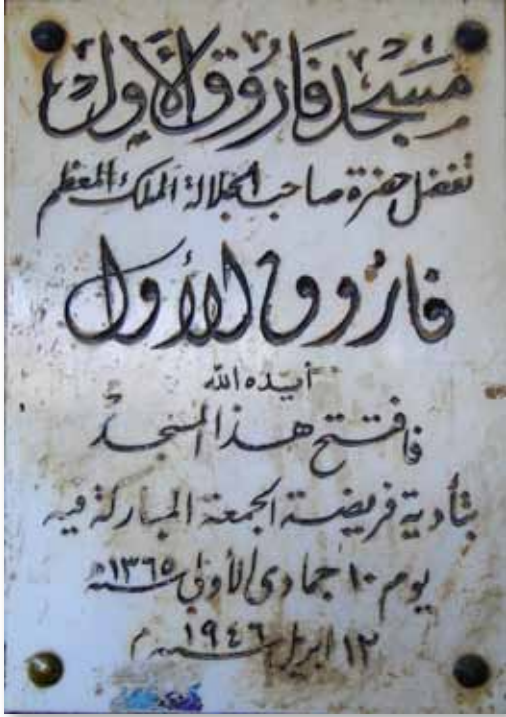 مسجد فاروق الأول
تفضل حضرة صاحب الجلالة الملك المعظم
فاروق الأول
أيده الله
فافتتح هذا المسجد
بتأدية فريضة الجمعة المباركة فيه
يوم ١٠ جمادى الأولى سنة ١٣٦٥هـ
١٢ ابريل سنة ١٩٤٦ م